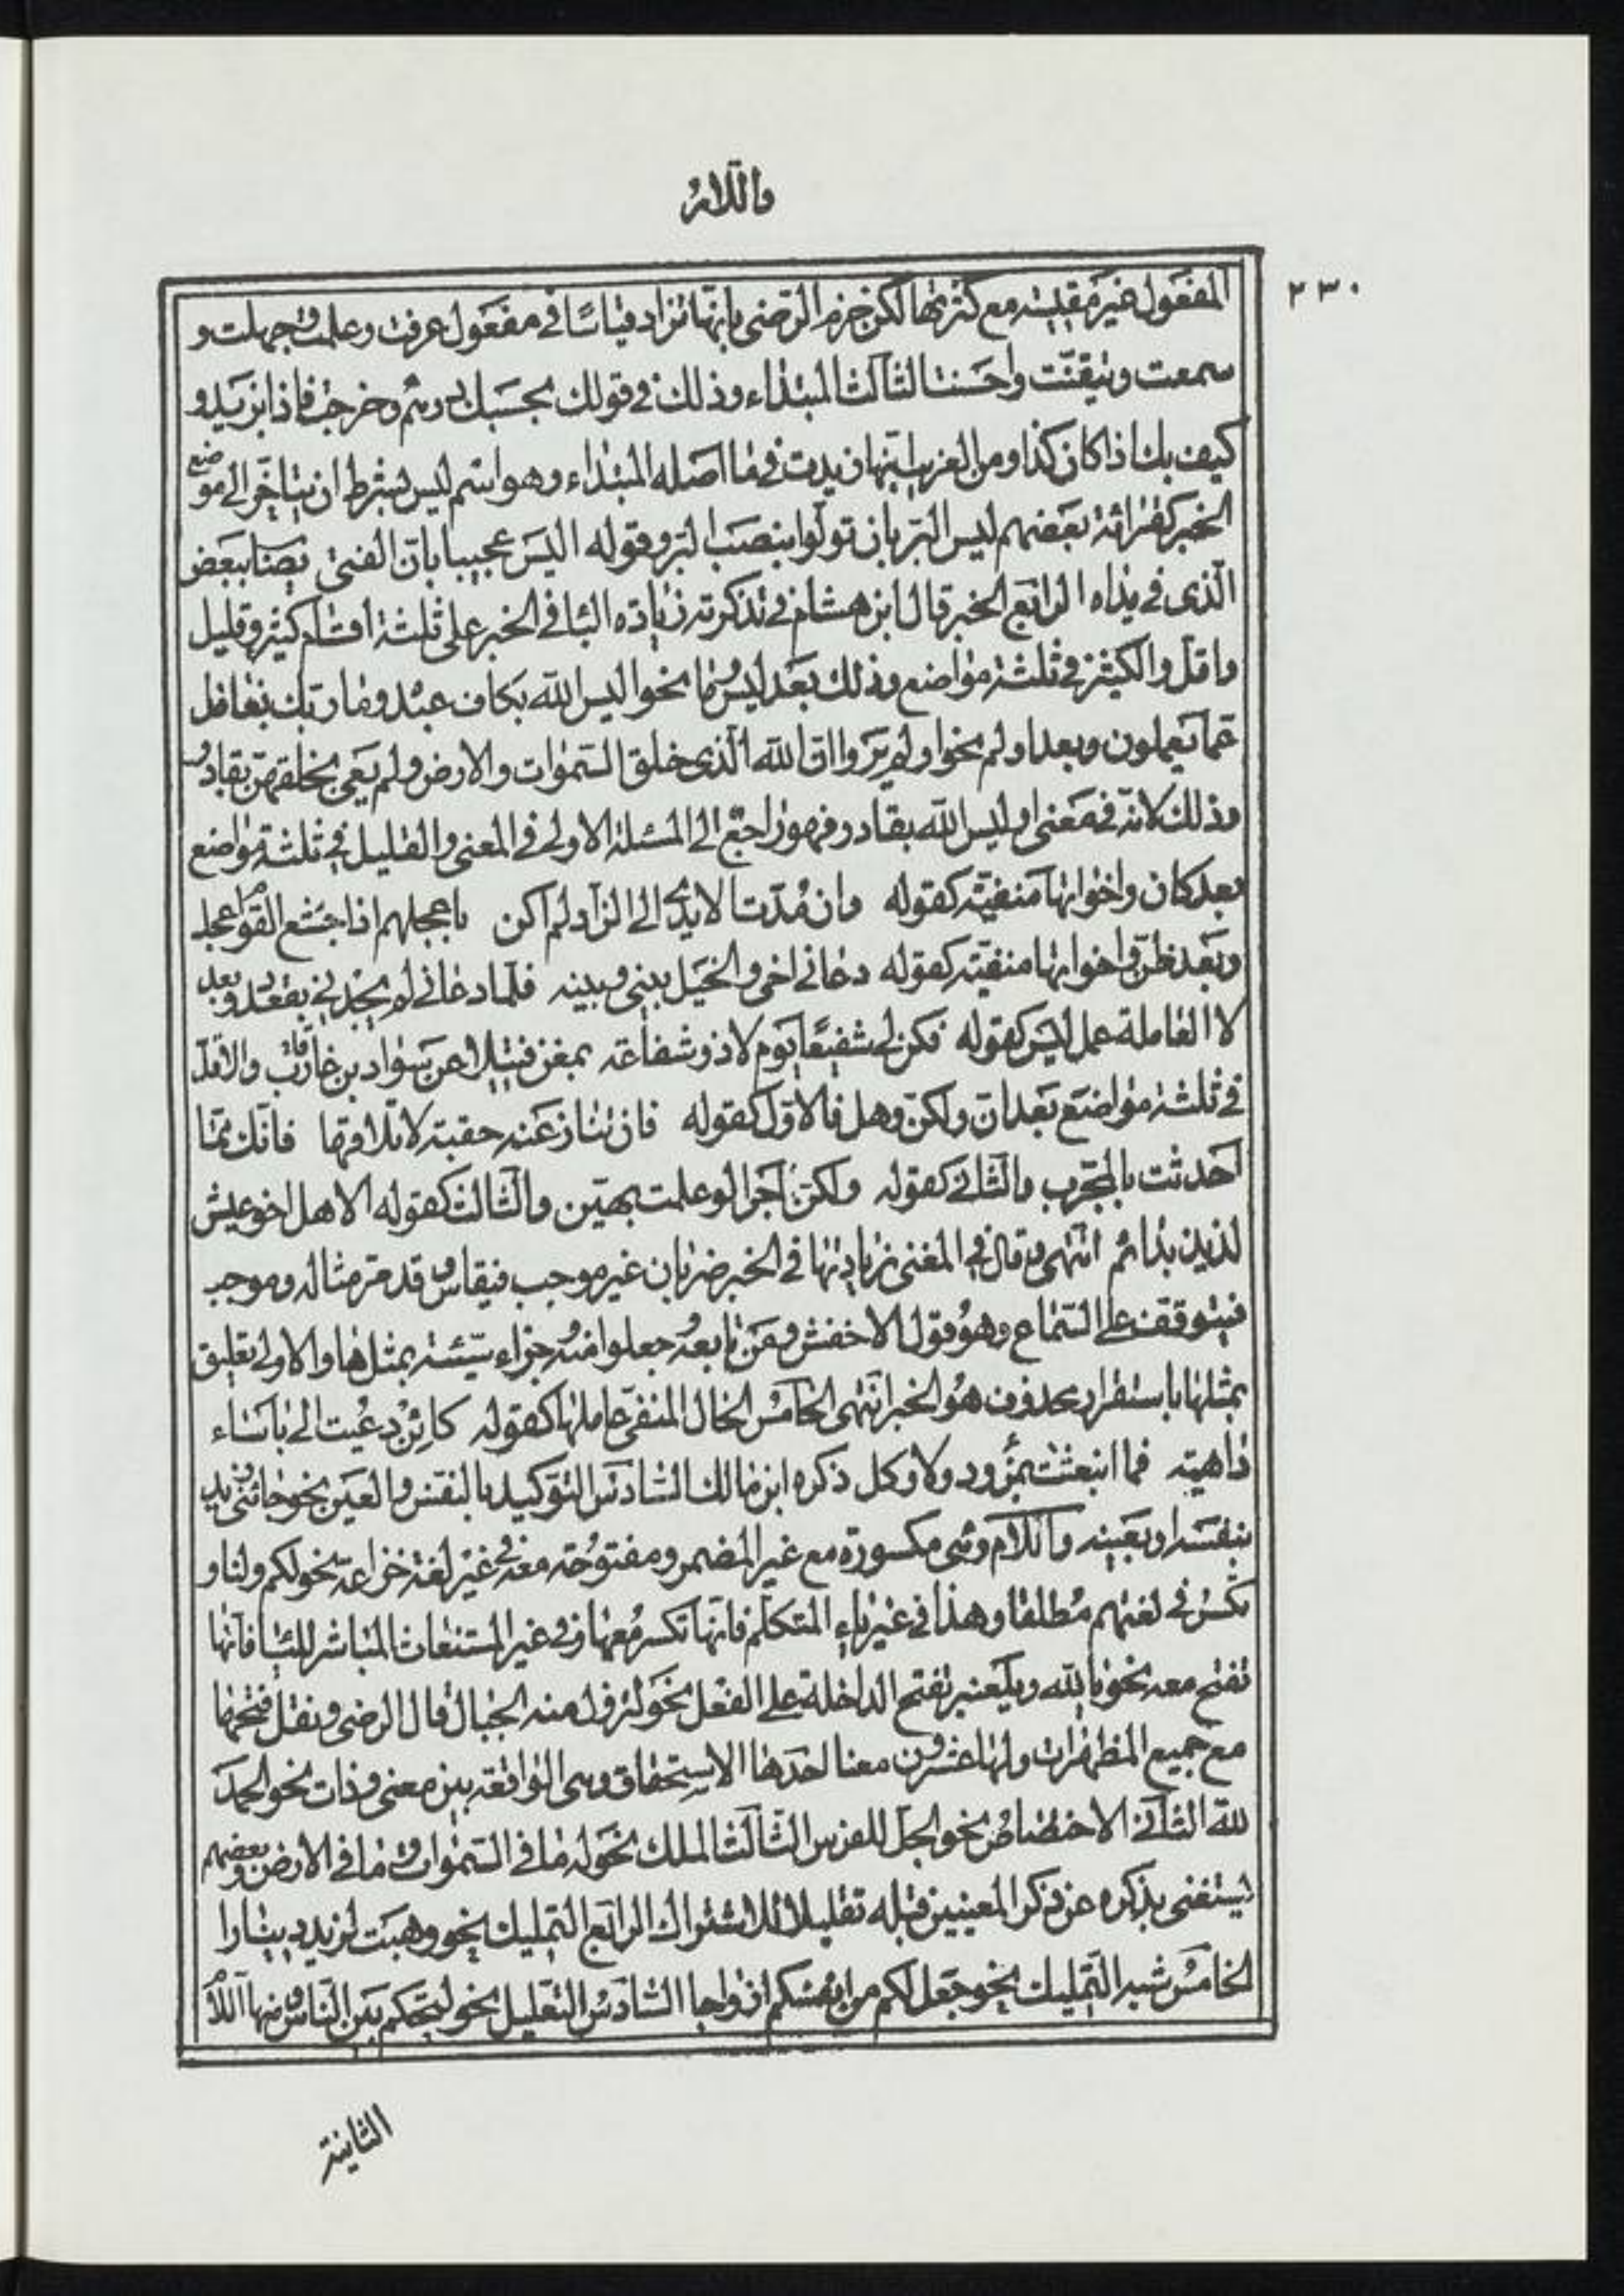 واللام
٢٣٠
المفعول غير مقيسة مع كثرتها لكن جزم الرّضى بانّها تزاد قياسًا فى مفعول عرفت وعلمت وجهلت و
سمعت وتيقّنت واحسنت الثالث المبتداء وذلك فى قولك بحسبك درهم وخرجت فاذا بزيد و
كيف بك اذا كان كذا ومن الغريب انّها زيدت فى ما اصله المبتداء وهو اسم ليس بشرط ان يتاخّر الى موضع
الخبر كقرائة بعضهم ليس البرّ بان تولّوا بنصب البر وقوله اليس عجيبا بان الفتى يصاب ببعض
الّذى فى يداه الرابع الخبر قال ابن هشام فى تذكرته زيادة البا فى الخبر على ثلثة اقسام كثير وقليل
واقل والكثير فى ثلثة مواضع وذلك بعد ليس وما نحو اليس اللّه بكاف عبده وما ربّك بغافل
عمّا يعملون وبعد اولم نحو اولم يروا انّ اللّه الّذى خلق السّموات والارض ولم يعى بخلقهنّ بقادر
وذلك لانّه فى معنى اوليس اللّه بقادر فهو راجع الى المسئلة الاولى فى المعنى والقليل فى ثلثة مواضع
بعد كان واخواتها منفيّة كقوله وان مدّت الايدى الى الزاد لم اكن باعجلهم اذ اجشع القوم اعجل
وبعد ظنّ واخواتها منفيّة كقوله دعانى اخى والخيل بينى وبينه فلمّا دعانى لم يجدنى بقعدد وبعد
لا العاملة عمل ليس كقوله فكن لى شفيعًا يوم لا ذو شفاعة بمغن فتيلا عن سواد بن قارب والاقلّ
فى ثلثة مواضع بعد انّ ولكنّ وهل فالاوّل كقوله فان تنا عنها حقبة لا تلاقها فانّك ممّا
احدثت بالمجّرب والثانى كقوله ولكنّ اجرا لو علمت بهيّن والثالث كقوله الا هل اخو عيش
لذيذ بدائم انتهى وقال فى المغنى زيادتها فى الخبر ضربان غير موجب فيقاس وقد مرّ مثاله وموجب
فيتوقف على السّماع وهو قول الاخفش ومن تابعه وجعلوا منه جزاء سيّئة بمثلها والاولى تعليق
بمثلها باستقرار محذوف هو الخبر انتهى الخامس الحال المنفى عاملها كقوله كائن دعيت الى باساء
داهية فما انبعثت بمزءود ولا وكل ذكره ابن مالك السّادس التوكيد بالنفس والعين نحو جائنى زيد
بنفسه او بعينه واللام وهى مكسورة مع غير المضمر ومفتوحة معه فى غير لغة خزاعة نحو لكم ولنا و
تكسر فى لغتهم مطلقا وهذا فى غير ياء المتكلّم فانّها تكسر معها وفى غير المستغاث المباشر لليا فانّها
تفتح معه نحو يا للّه وبلعنبر تفتح الداخلة على الفعل نحو لتزول منه الجبال قال الرضى ونقل فتحها
مع جميع المظهرات ولها عشرون معنا احدها الاستحقاق وهى الواقعة بين معنى وذات نحو الحمد
للّه الثانى الاختصاص نحو الجل للفرس الثالث الملك نحو له ما فى السّموات وما فى الارض وبعضهم
يستغنى بذكره عن ذكر المعنيين قبله تقليلا للاشتراك الرابع التمليك نحو وهبت لزيد دينارا
الخامس شبه التّمليك نحو جعل لكم من انفسكم ازواجا السّادس التعليل نحو لتحكم بين النّاس ومنها اللام
الثانية